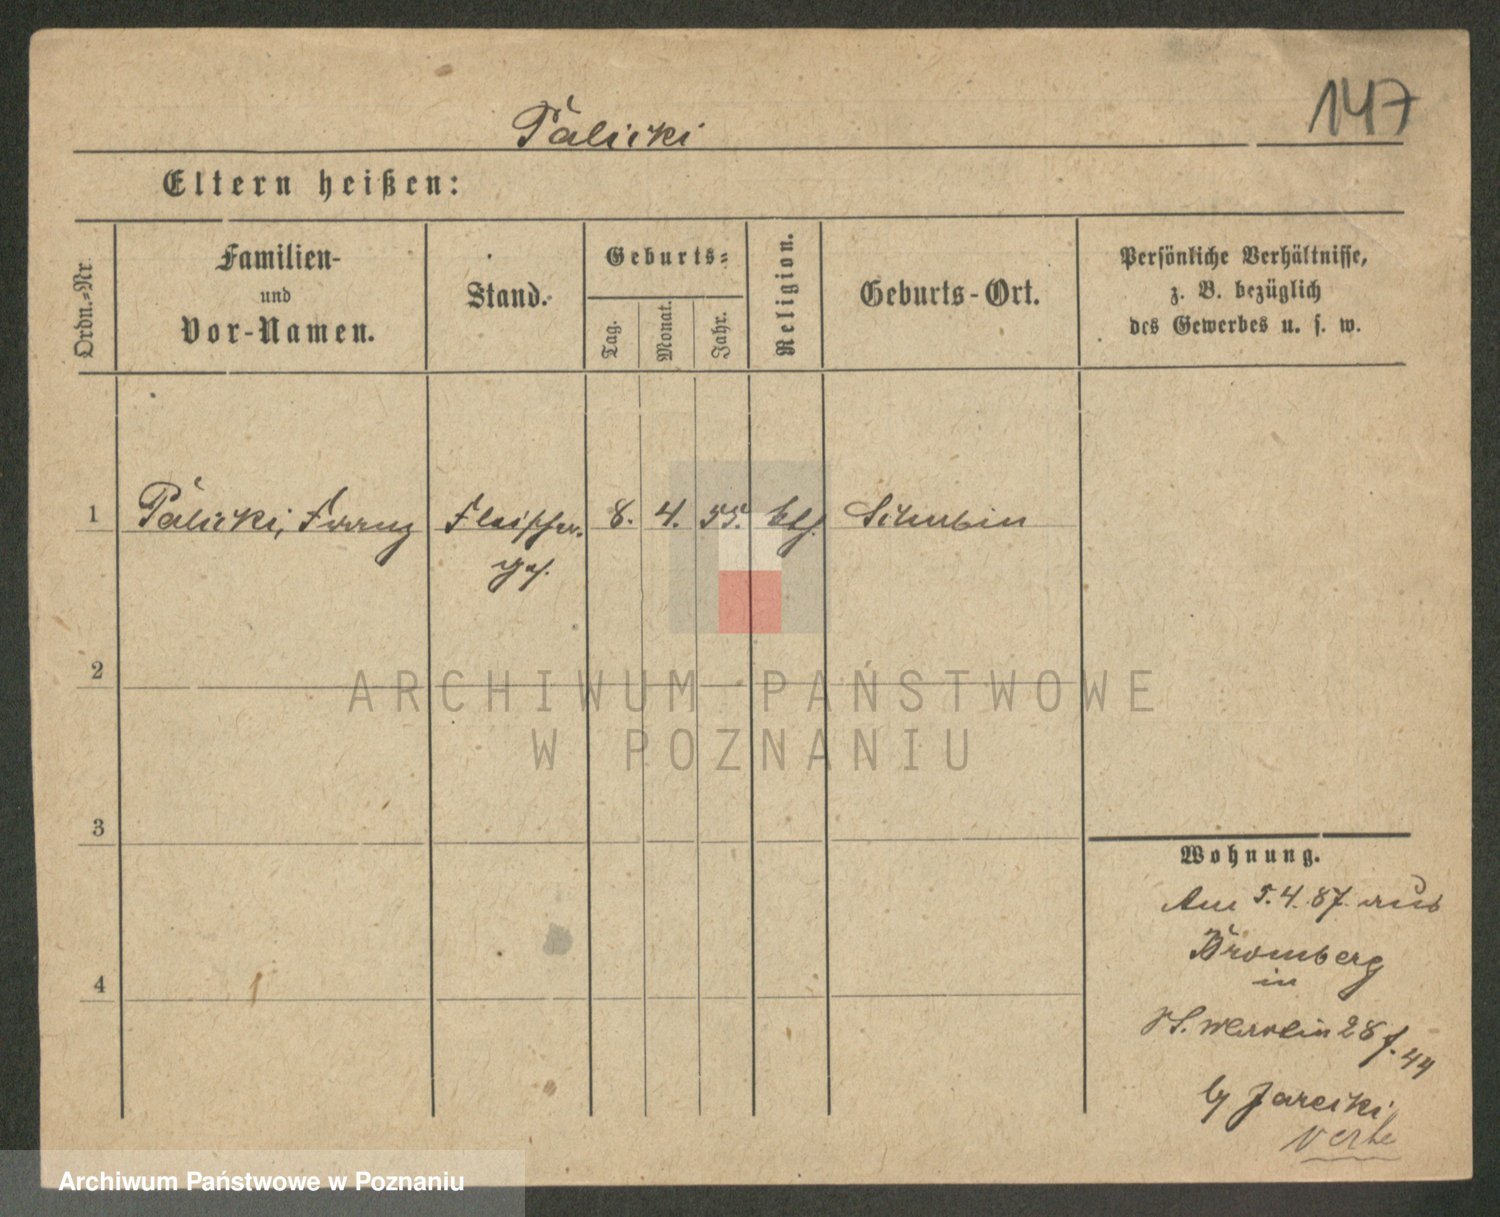 Palicki
147
Eltern heißen:
Ordn.=Nr.
Familien-
und
Vor-Namen.
Stand.
Geburts=
Tag.
Monat.
Jahr.
Religion.
Geburts-Ort.
Persönliche Verhältnisse,
z. B. bezüglich
des Gewerbes u. s. w.
1 Palicki, Franz Fleischer- 8. 4. 55. kth. Schubin
ges.
2
3
4
Wohnung.
Am 5.4.87. aus
Bromberg
in
St. Martin 28
b/ Jarecki
ARCHIWUM PAŃSTWOWE
W POZNANIU
Archiwum Państwowe w Poznaniu